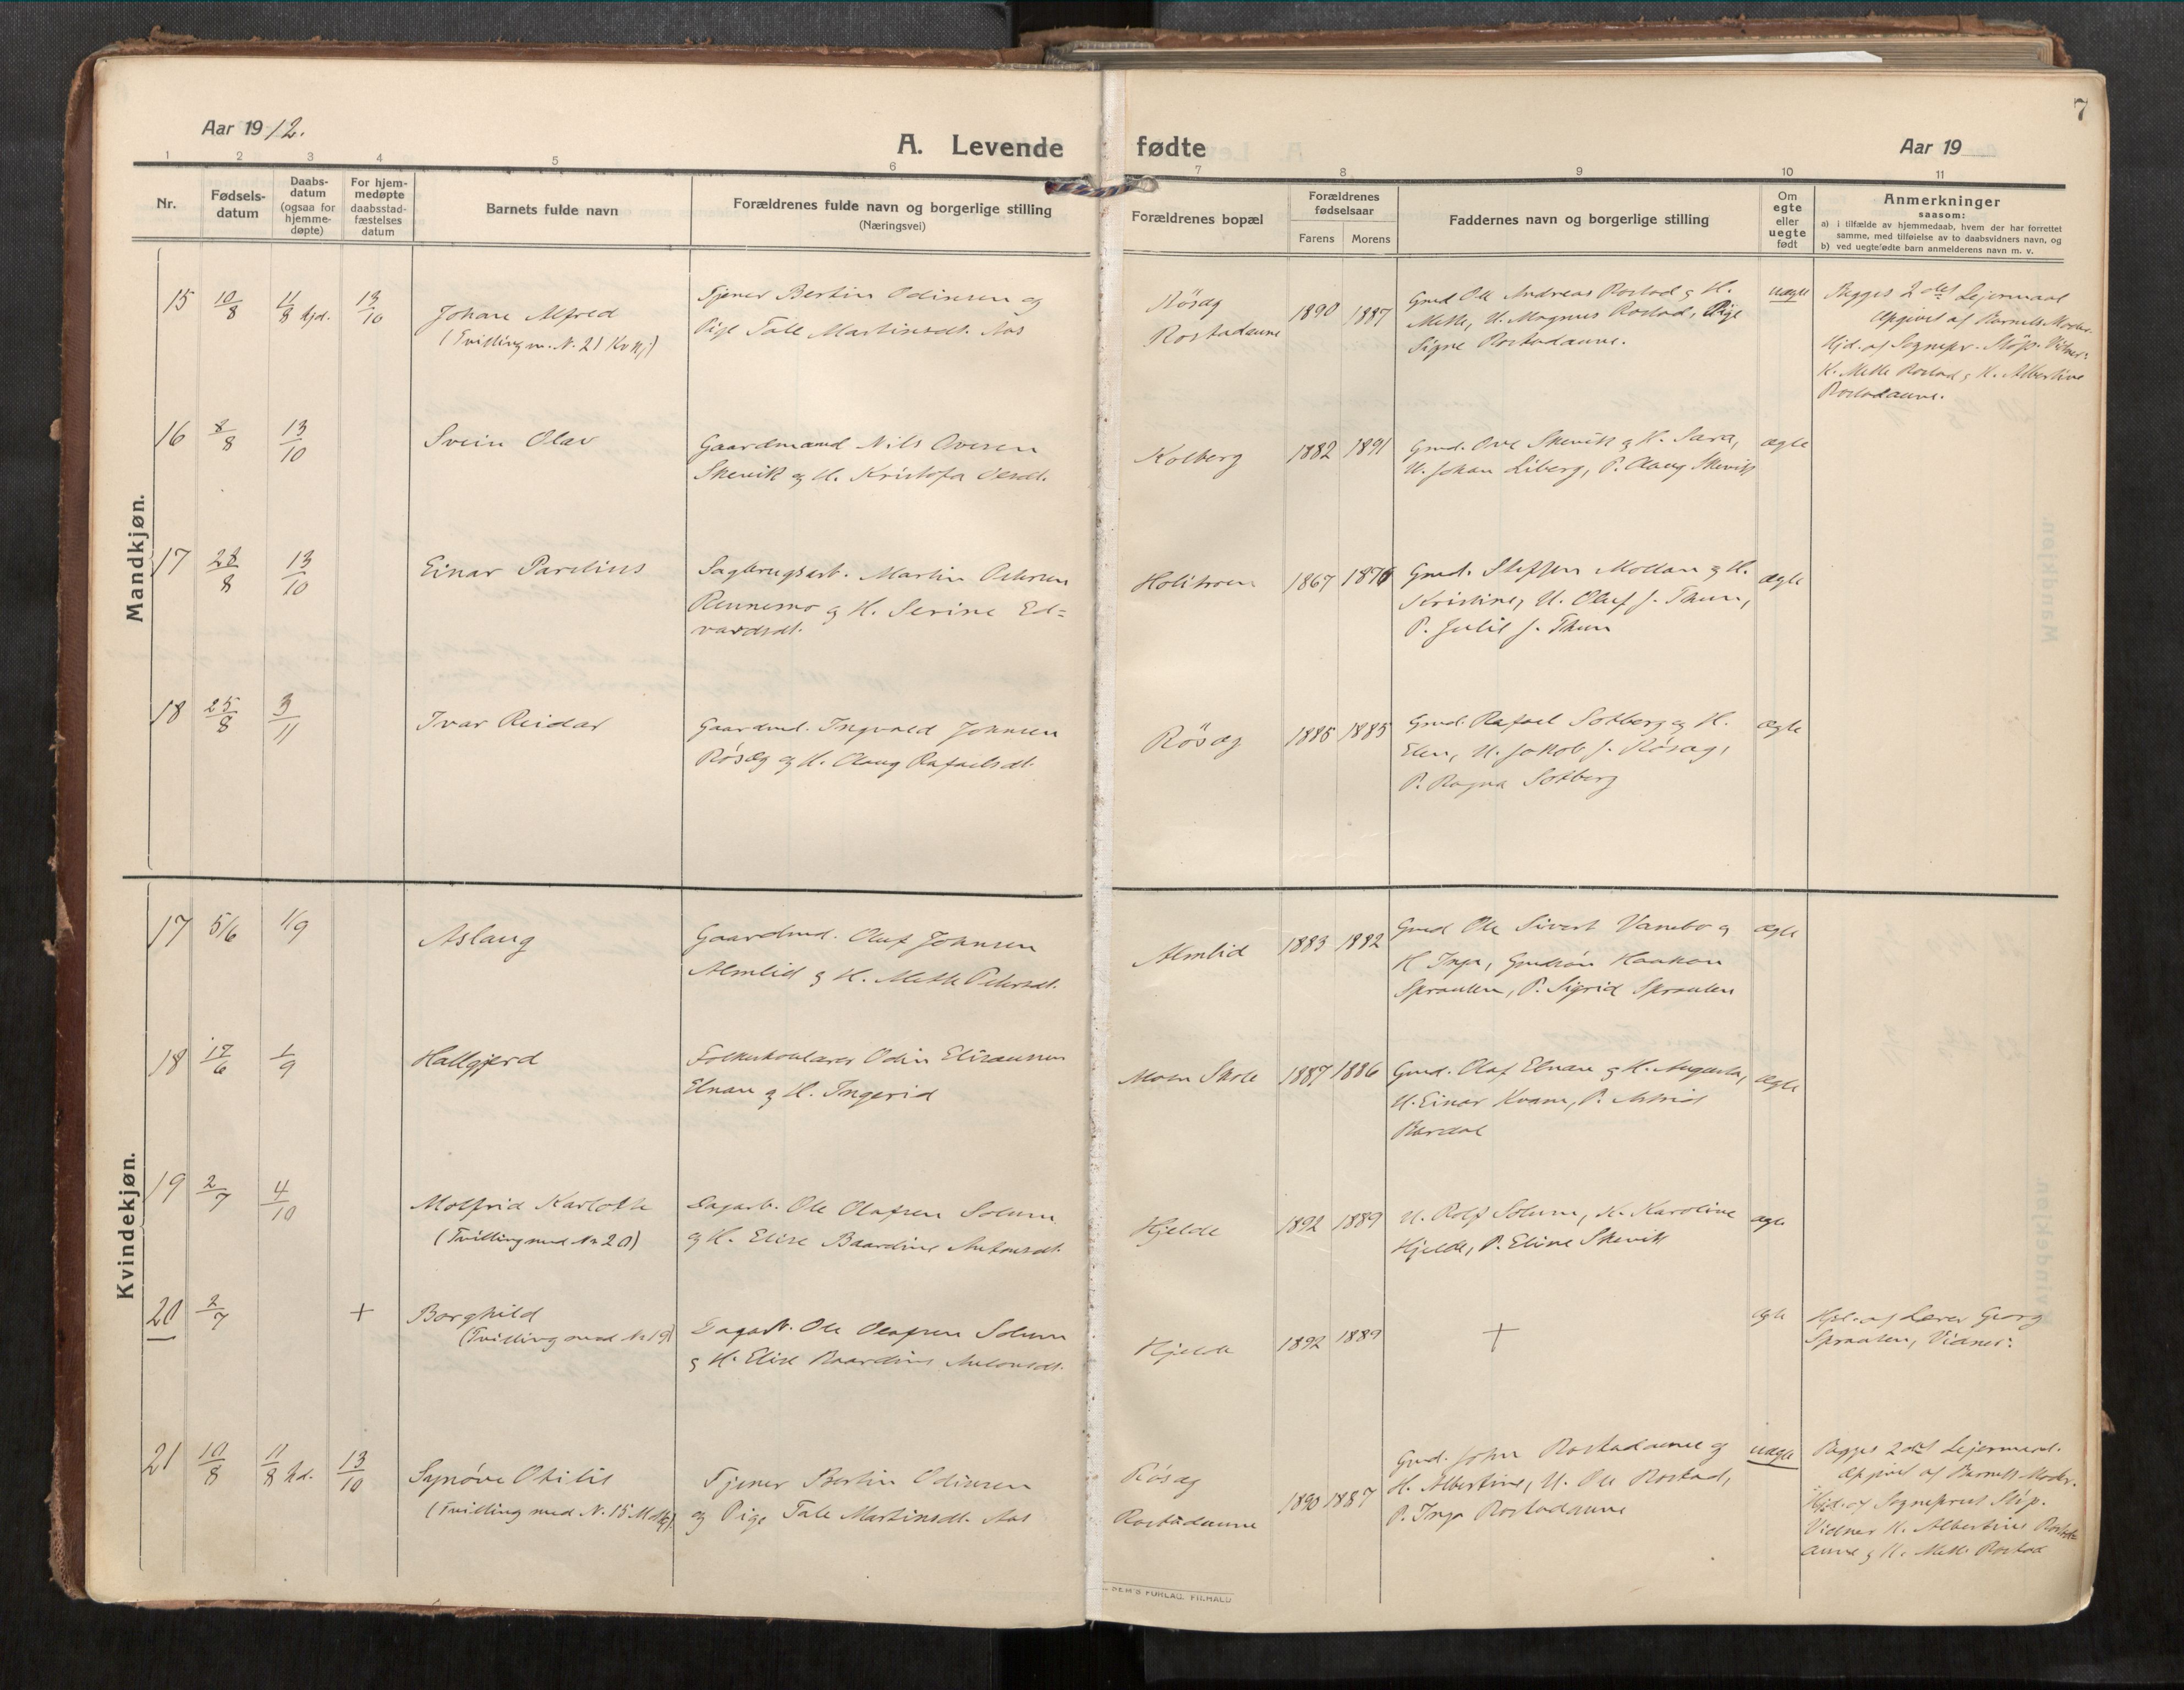 7
Aar 1912.
A. Levende fødte
Aar 19
1 2 3 4 5 6 7 8 9 10 11
Nr.
Fødsels-
datum
Daabs-
datum
(ogsaa for
hjemme-
døpte)
For hjem-
medøpte
daabsstad-
fæstelses
datum
Barnets fulde navn
Forældrenes fulde navn og borgerlige stilling
(Næringsvei)
Forældrenes bopæl
Forældrenes
fødselsaar
Farens Morens
Faddernes navn og borgerlige stilling
Om
egte
eller
uegte
født
Anmerkninger
saasom:
a) i tilfælde av hjemmedaab, hvem der har forrettet
samme, med tilføielse av to daabsvidners navn, og
b) ved uegtefødte barn anmelderens navn m. v.
Mandkjøn.
15 10/8 11/8 hjd. 13/10
Johan Alfred
(Tvilling m. N. 21 Kvkj)
Tjener Bertin Odinsen og
Pige Tale Martinsdt. Aas
Røsæg
Rostadaune
1890 1887
Gmd Ole Andreas Rostad & H.
Mette, U. Magnus Rostad, Pige
Signe Rostadaune.
uægte
Begges 2det Lejermaal
Opgivet af Barnets Moder.
Hjd. af Sognepr. Støp. Vidner:
K. Mette Rostad & K. Albertine
Rostadaune.
16 8/8 13/10
Svein Olav
Gaardmand Nils Ovesen
Skevik og H. Kristofa Olsdt.
Kolberg
1882 1891
Gmd. Ove Skevik & H. Sara,
U. Johan Liberg, P. Olaug Skevik
ægte
17 28/8 13/10
Einar Parelius
Sagbrugsarb. Martin
Rennemo og H. Serine Ed=
vardsdt.
1867 1876
Gmd. Steffen Mollan & H.
Kristine, U. Oluf J. Thun,
P. Julie J. Thun
ægte
18 25/8 3/11
Ivar Reidar
Gaardmd. Ingvald Johnsen
Røsæg og H. Olaug Rafaelsdt.
Røsæg
1885 1885
Gmd. Rafael Solberg og H.
Elen, U. Jakob J. Røsæg,
P. Ragna Solberg
ægte
Kvindekjøn.
17 5/6 1/9
Aslaug
Gaardmd. Oluf Johnsen
Almlid & H. Mette Petersdt.
Almlid
1883 1882
Gmd Ole Sivert Vambo og
H Inga, Haakon
Spraaten, P. Sigrid Spraaten
ægte
18 17/6 1/9
Hallgjerd
Folkeskolelærer Odin Eliseussen
Elnan & H. Ingerid
Mosvi Skole
1887 1886
Gmd. Olaf Elnan & H. Augusta,
U. Einar Kvam, P. Astrid
Bardal
ægte
19 2/7 4/10
Molfrid Karlotte
(Tvilling med No 20)
Dagarb. Ole Olafsen Solum
og H. Elise Baardine Antonsdt.
Hjelde
1892 1889
U. Rolf Solum, K. Karoline
Hjelde, P. Eline Skevik
ægte
20 2/7 +
Borghild
(Tvilling med No 19)
Dagarb. Ole Olafsen Solum
& H. Elise Baardine Antonsdt.
Hjelde
1892 1889
+
ægte
af Lærer Georg
Spraaten, Vidner:
21 10/8 11/8 hd. 13/10
Synøve Otilie
(Tvilling med N. 15 Mdkj).
Tjener Bertin Odinsen
og Pige Tale Martinsdt. Aas
Røsæg
Rostadaune
1890 1887
Gmd. John Rostadaune og
H. Albertine, U. Ole Rostad,
P. Inga Rostadaune
uægte
Begges 2det Lejermaal.
Opgivet af Barnets Moder.
Hjd. af Sogneprest Støp.
Vidner K. Albertine Rostad=
aune & K. Mette Rostad
FORLAG.